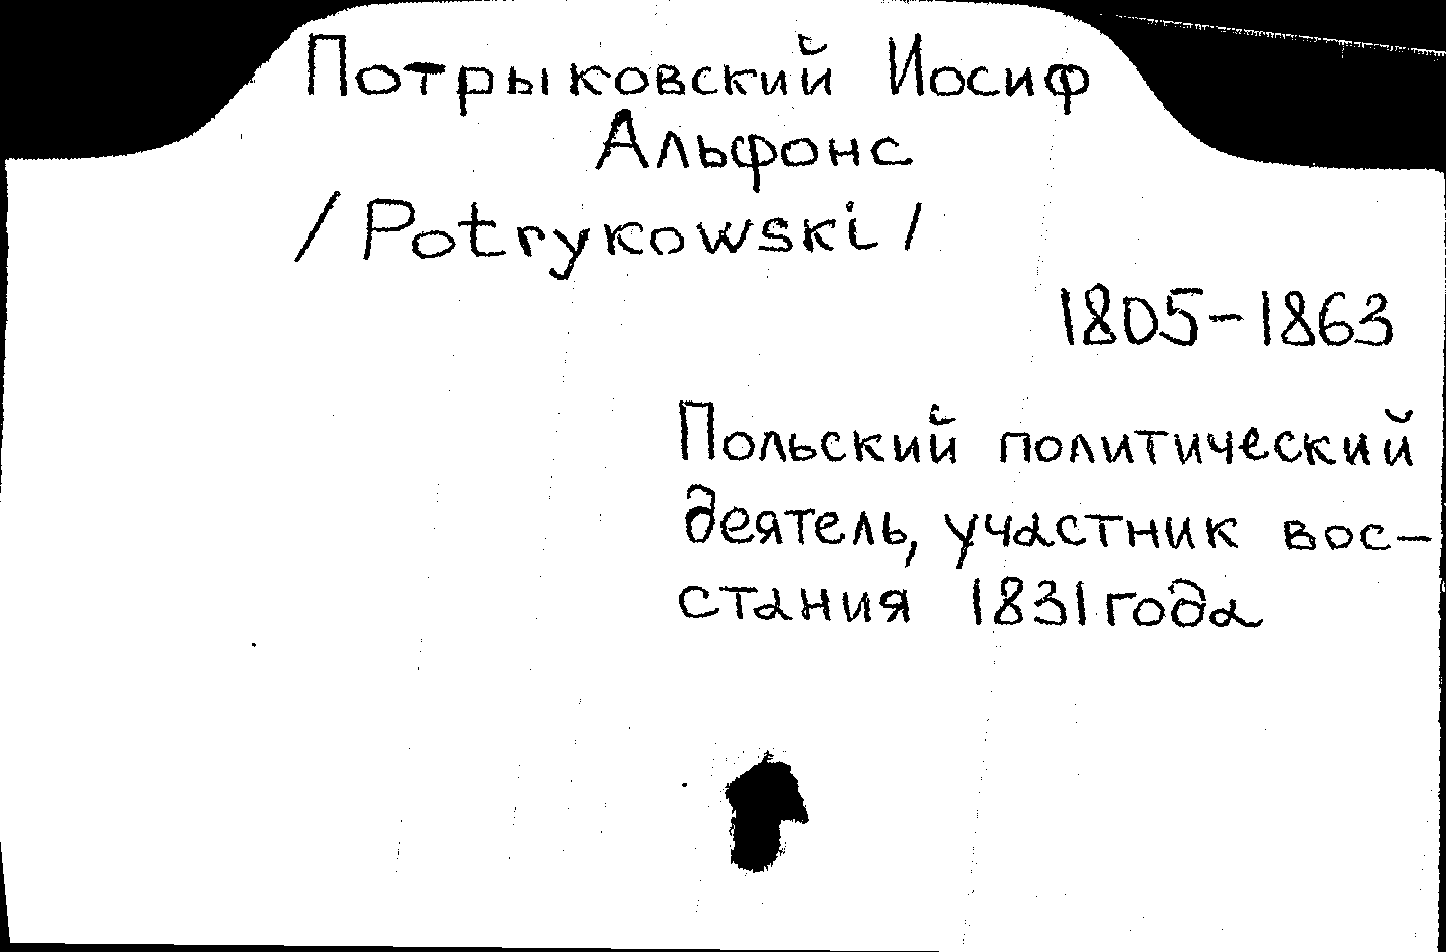 Потрыковский Иосиф
Альфонс
/Potrykowski/
1805-1863
Польский политический
деятель, участник вос-
стания 1831 года